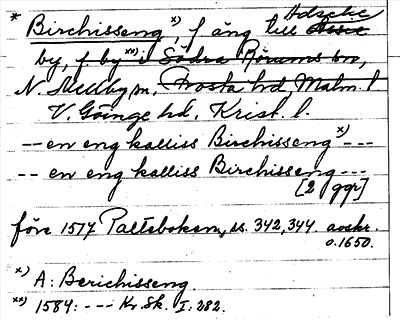 Adseke
* Birchisseng x), f äng till Assve
by, f. by xx) i Södra Rörums sn,
N. Mellby sn, Frosta hd, Malm. l.
V. Göinge hd, Krist. l.
-- en eng kalliss Birchisseng x) ---
-- en eng kalliss Birchisseng ---
[2 ggr]
före 1517 Palteboken, ss. 342, 344. avskr.
o. 1650.
x) A: Berichisseng.
xx) 1584: --- Kr. Sk. I: 282.